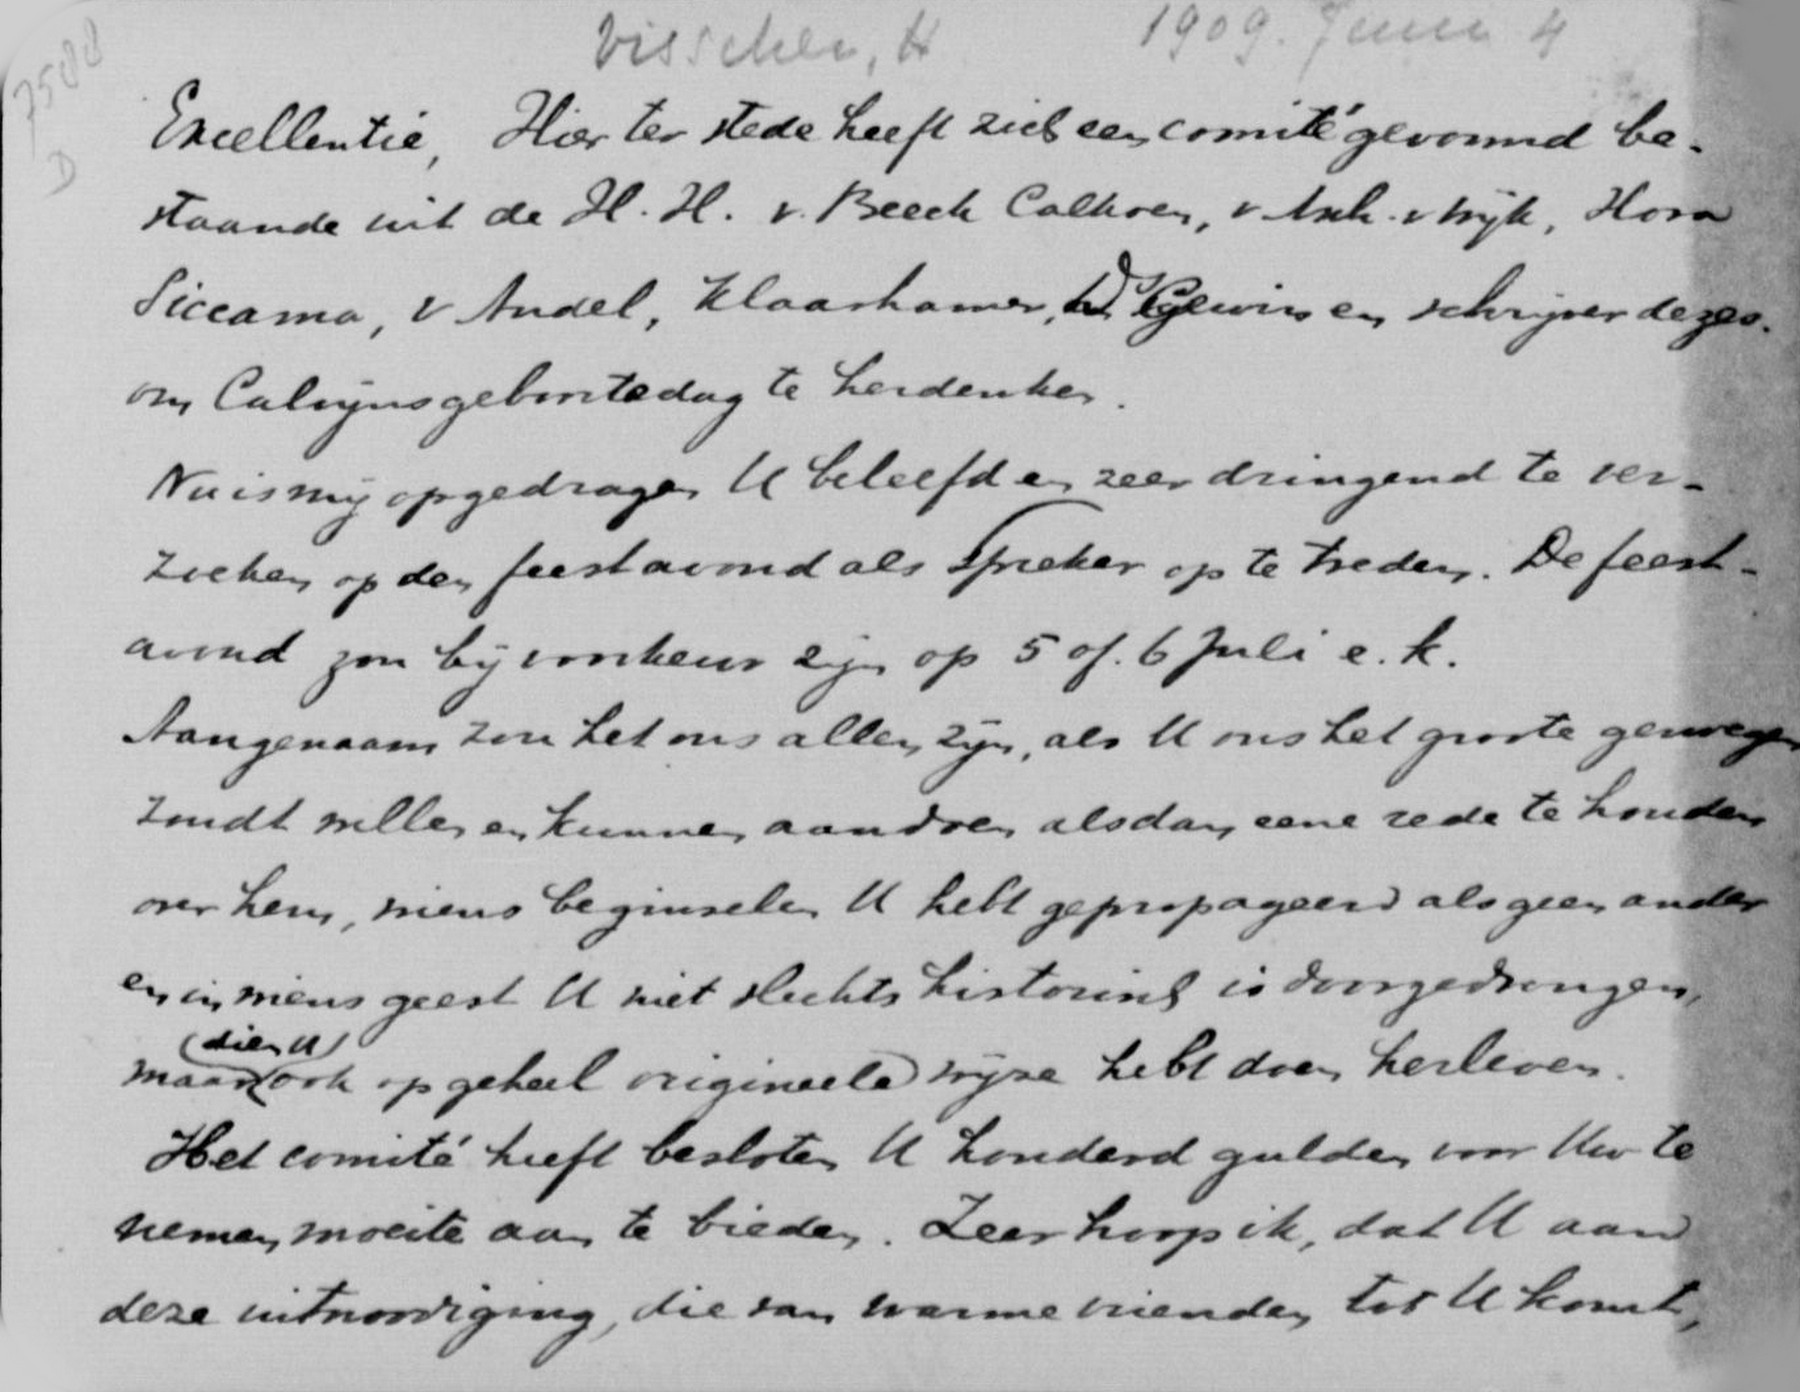 7588
D
Visscher, H 1909. Juni 4
Excellentie, Hier ter stede heeft zich een comité gevormd be-
staande uit de H. H. v. Beeck Calkoen, v Asch. v Wijk, Hora
Siccama, v Andel, Klaarhamer, Gewin en schrijver dezes.
om Calvijnsgeboortedag te herdenken.
Nu is mij opgedragen U beleefd en zeer dringend te ver-
zoeken op den feestavond als spreker op te treden. De feest-
avond zou bij voorkeur zijn op 5 of. 6 Juli e. k.
Aangenaam zou het ons allen zijn, als U ons het groote genoegen
zoudt willen en kunnen aandoen alsdan eene rede te houden
over hem, wiens beginselen U hebt gepropageerd als geen ander
en in wiens geest U niet slechts historisch is doorgedrongen,
(dien U)
maar ook op geheel origineele wijze hebt doen herleven.
Het comité heeft besloten U honderd gulden voor Uw te
nemen moeite aan te bieden. Zeer hoop ik, dat U aan
deze uitnoodiging, die van warme vrienden tot U komt,